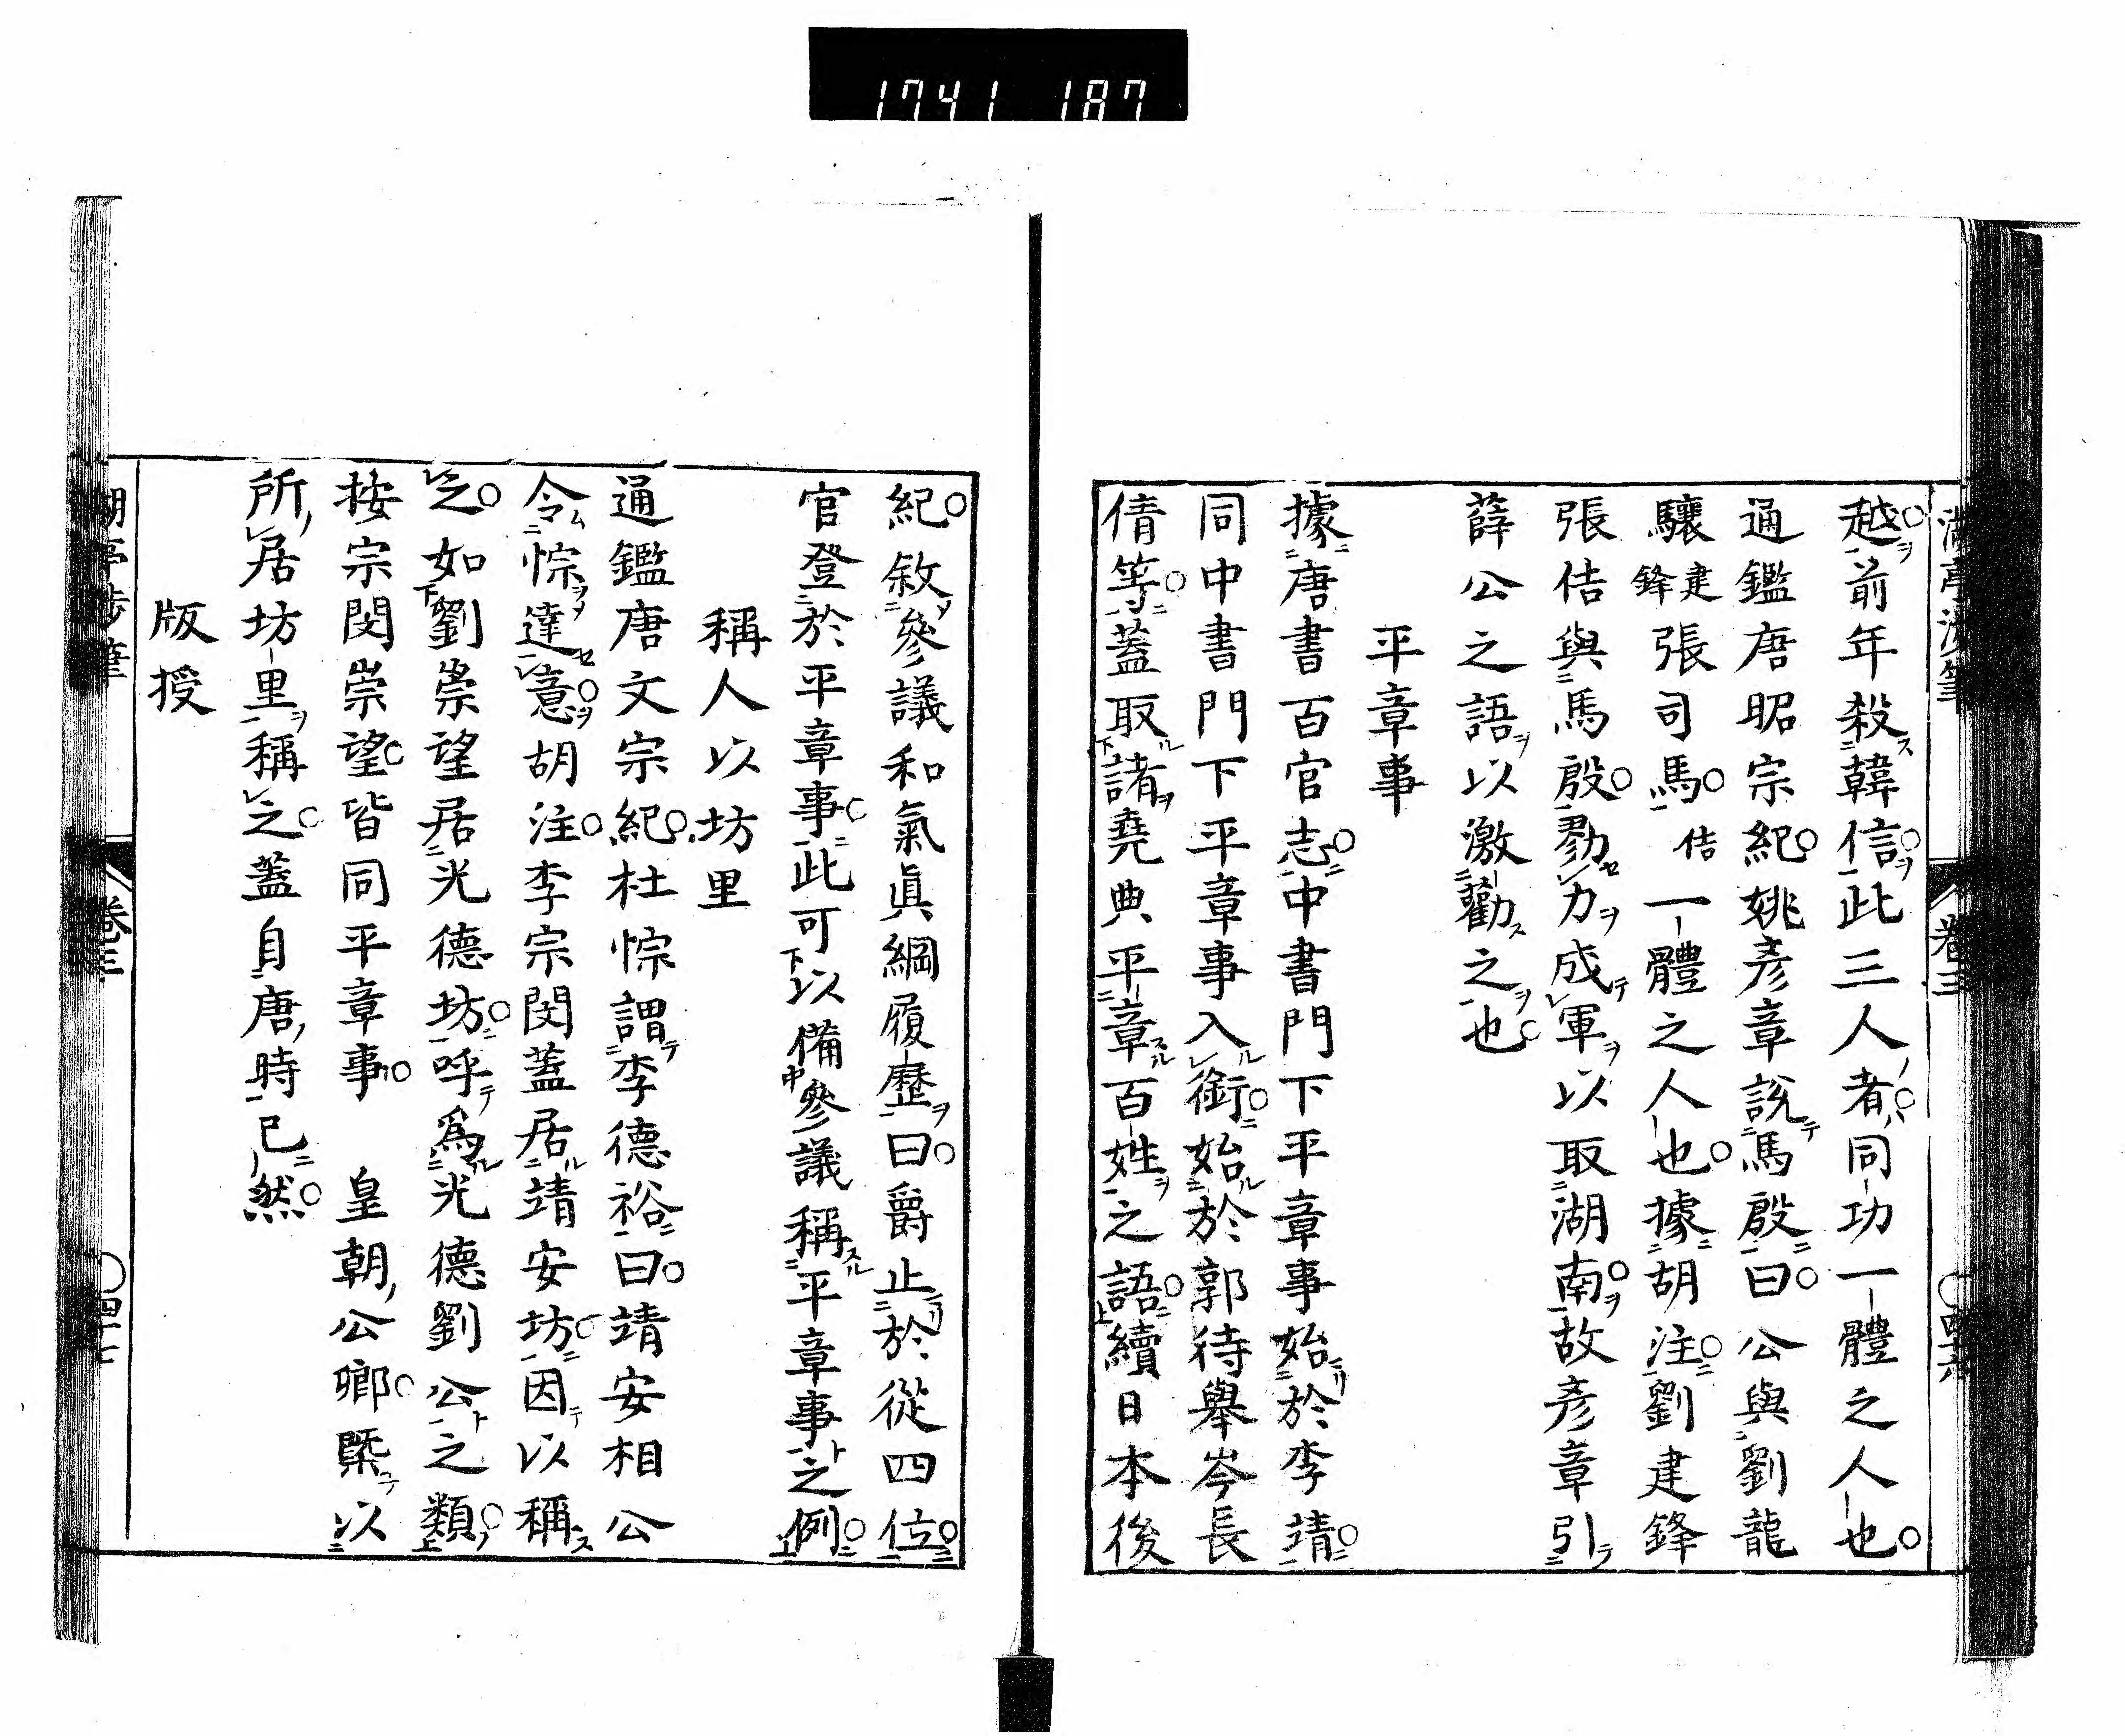 1741 187
越前年殺韓信此三人者同功一體之人也
通鑑唐昭宗紀姚彥章說馬殷曰公與劉龍
驤建鋒張司馬佶一體之人也據胡注劉建鋒
張佶與馬殷勠力成軍以取湖南故彥章引
薛公之語以激勸之也
平章事
據唐書百官志中書門下平章事始於李靖
同中書門下平章事入銜始於郭待舉岑長
倩等蓋取諸堯典平章百姓之語續日本後
紀敘參議和氣眞綱履歷曰爵止於從四位
官登於平章事此可以備參議稱平章事之例
稱人以坊里
通鑑唐文宗紀杜悰謂李德裕曰靖安相公
令悰達意胡注李宗閔蓋居靖安坊因以稱
之如劉崇望居光德坊呼爲光德劉公之類
按宗閔崇望皆同平章事 皇朝公卿槩以
所居坊里稱之蓋自唐時已然
版授
卷三